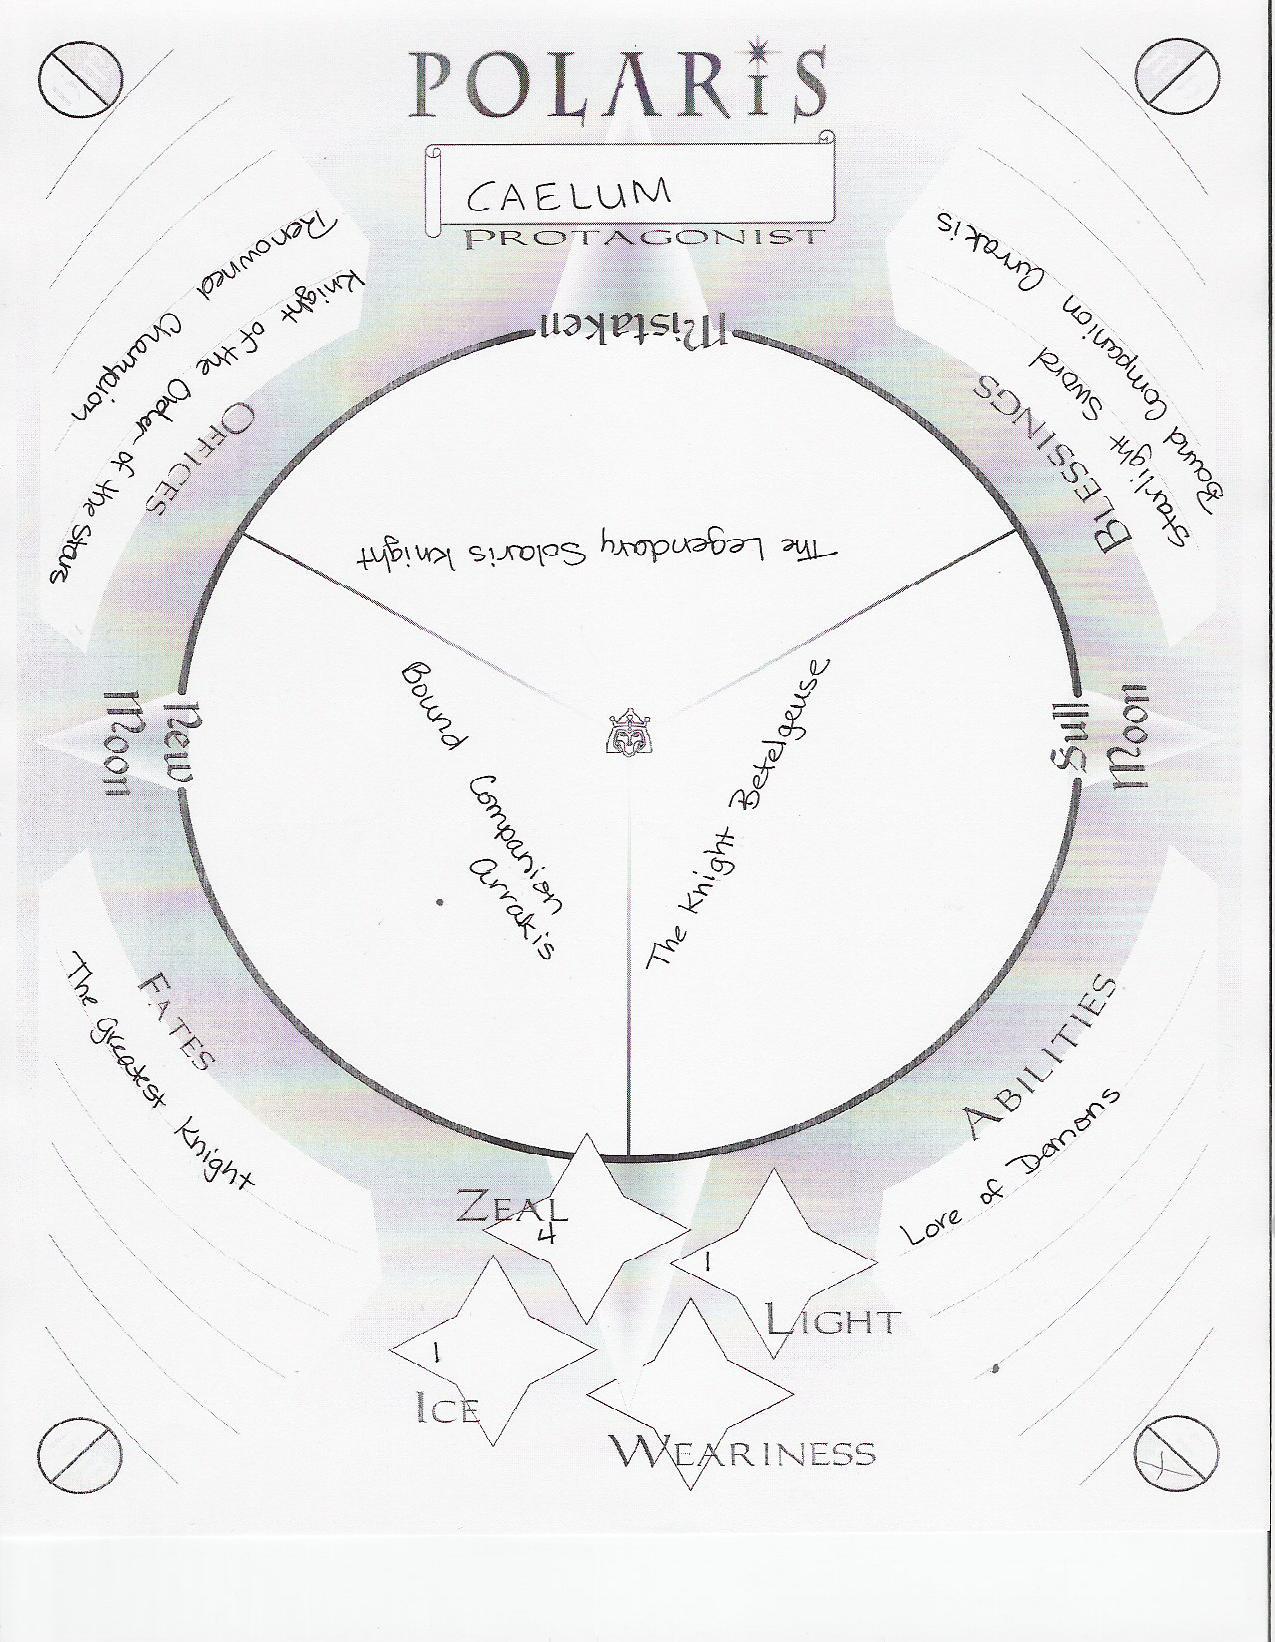 POLARIS
CAELUM
PROTAGONIST
Mistaken
Renowned Champion
Knight of the Order of the Stars
OFFICES
Bound Companion Arrakis
Starlight Sword
BLESSINGS
The Legendary Solaris Knight
New
Moon
Full
Moon
Bound Companion
Arrakis
The Knight Betelgeuse
FATES
The Greatest Knight
ABILITIES
Lore of Demons
ZEAL
4
1
LIGHT
1
ICE
WEARINESS